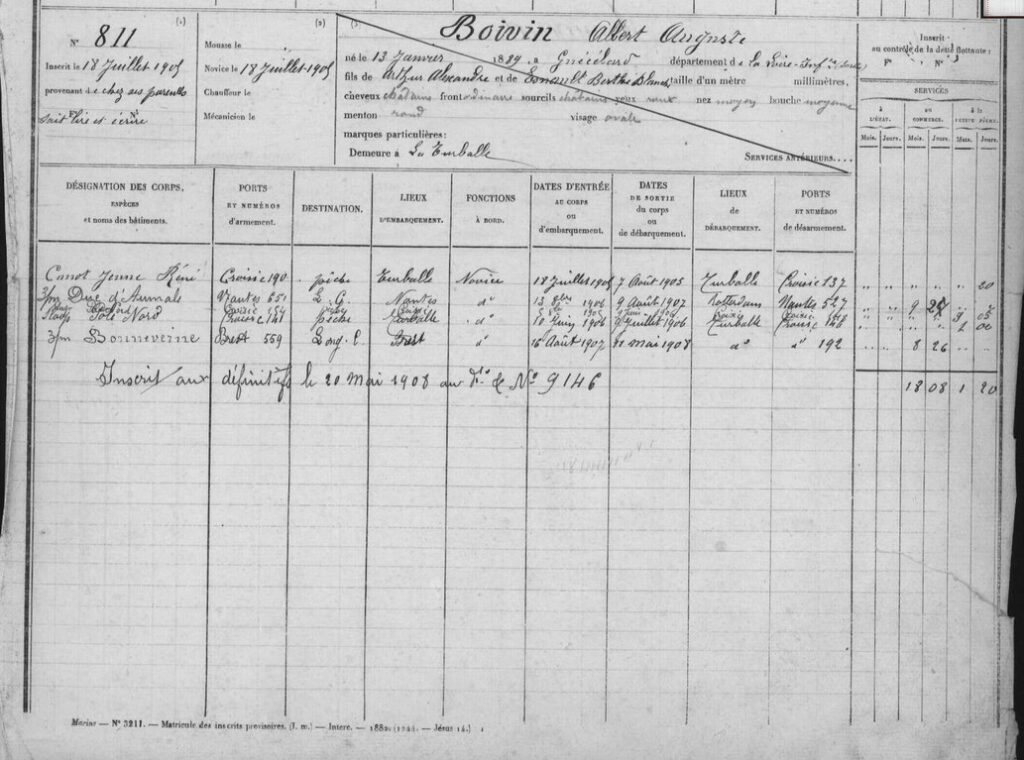 N° 811
Inscrit le 18 Juillet 1905
provenant de chez ses parents
sait lire et écrire
(1)
Mousse le "
Novice le 18 Juillet 1905
Chauffeur le
Mécanicien le
(2)
(3)
Boivin Albert Auguste
né le 13 Janvier 1889 à département de la Loire-Infre
fils de Arthur Alexandre et de Esnault Berthe taille d'un mètre millimètres,
cheveux châtains front ordinaire sourcils châtains yeux roux nez moyen bouche moyenne
menton rond visage ovale
marques particulières :
Demeure à La Turballe
SERVICES ANTÉRIEURS....
Inscrit
au contrôle de la demi-flottante :
F° N°
SERVICES
à L'ÉTAT. au COMMERCE. à la PETITE PÊCHE.
Mois. Jours. Mois. Jours. Mois. Jours.
DÉSIGNATION DES CORPS, ESPÈCES et noms des bâtiments.
PORTS ET NUMÉROS d'armement.
DESTINATION.
LIEUX D'EMBARQUEMENT.
FONCTIONS À BORD.
DATES D'ENTRÉE AU CORPS ou d'embarquement.
DATES DE SORTIE du corps ou de débarquement.
LIEUX de DÉBARQUEMENT.
PORTS ET NUMÉROS de désarmement.
Canot Jenne Réné Croisic 190 pêche Turballe Novice 18 Juillet 1905 7 Août 1905 Turballe Croisic 137 " " " " " 20
3/m Duc d'Aumale Nantes 651 L. G. Nantes d° 13 8bre 1906 9 Août 1907 Rotterdam Nantes 527 " " 9
Pôle Nord Croisic 141 pêche Turballe d° 10 Juin 1906 9 Juillet 1906 Turballe Croisic 146
3/m Bonneveine Brest 559 Long. C. Brest d° 16 Août 1907 11 mai 1908 d° d° 192 8 26
Inscrit aux définitifs le 20 Mai 1908 au f° & N° 9146
18 08 1 20
Marine — N° 3211. — Matricule des inscrits provisoires. (I. m.) — Interc. — — Jésus